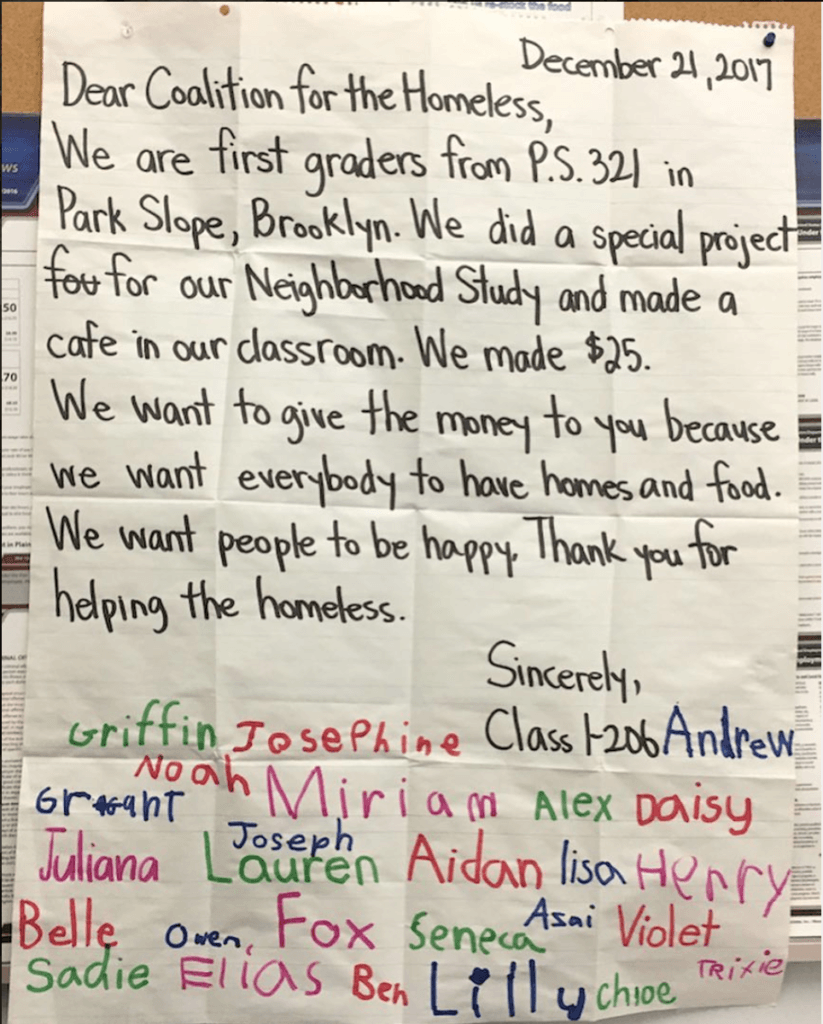 re-stock the food
December 21, 2017
Dear Coalition for the Homeless,
We are first graders from P.S. 321 in
Park Slope, Brooklyn. We did a special project
for our Neighborhood Study and made a
cafe in our classroom. We made $25.
We want to give the money to you because
we want everybody to have homes and food.
We want people to be happy. Thank you for
helping the homeless.
Sincerely,
Class 1-206
Griffin Josephine Andrew
Noah Miriam Alex Daisy
Grant
Joseph
Juliana Lauren Aidan lisa Henry
Belle Owen, Fox Seneca Asai Violet
Sadie Elias Ben Lilly chloe Trixie
WS
50
70